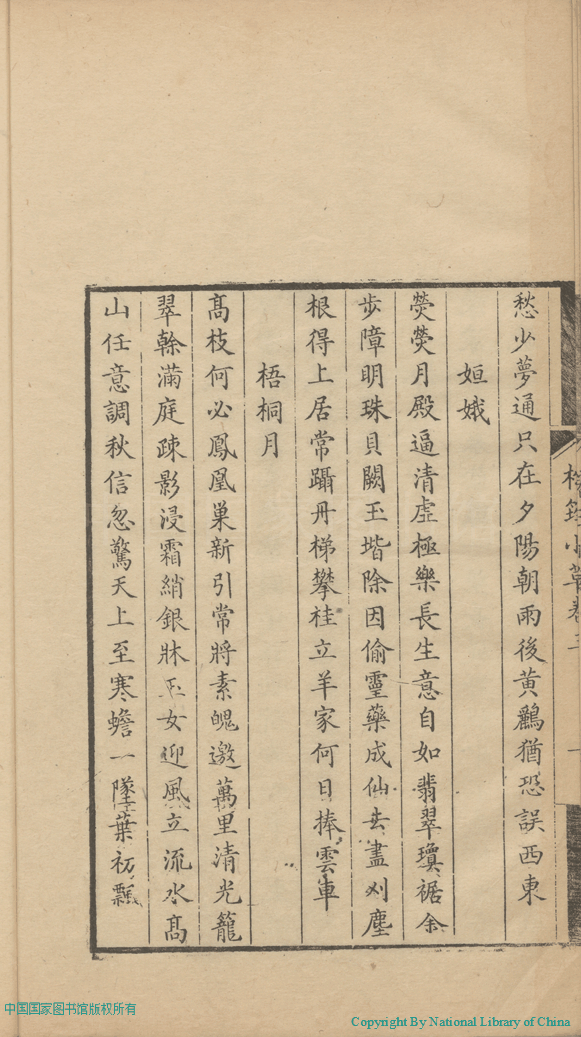 愁少夢通只在夕陽朝雨後黄鸝猶恐誤西東
姮娥
熒熒月殿逼清虛極樂長生意自如翡翠瓊裾金
步障明珠貝闕玉堦除因偷靈藥成仙去盡刈塵
根得上居常躡丹梯攀桂立羊家何日捧雲車
梧桐月
高枝何必鳳凰巢新引常將素魄邀萬里清光籠
翠榦滿庭疎影浸霜綃銀牀玉女迎風立流水高
山任意調秋信忽驚天上至寒蟾一墜葉初飄
中国国家图书馆版权所有
Copyright By National Library of China